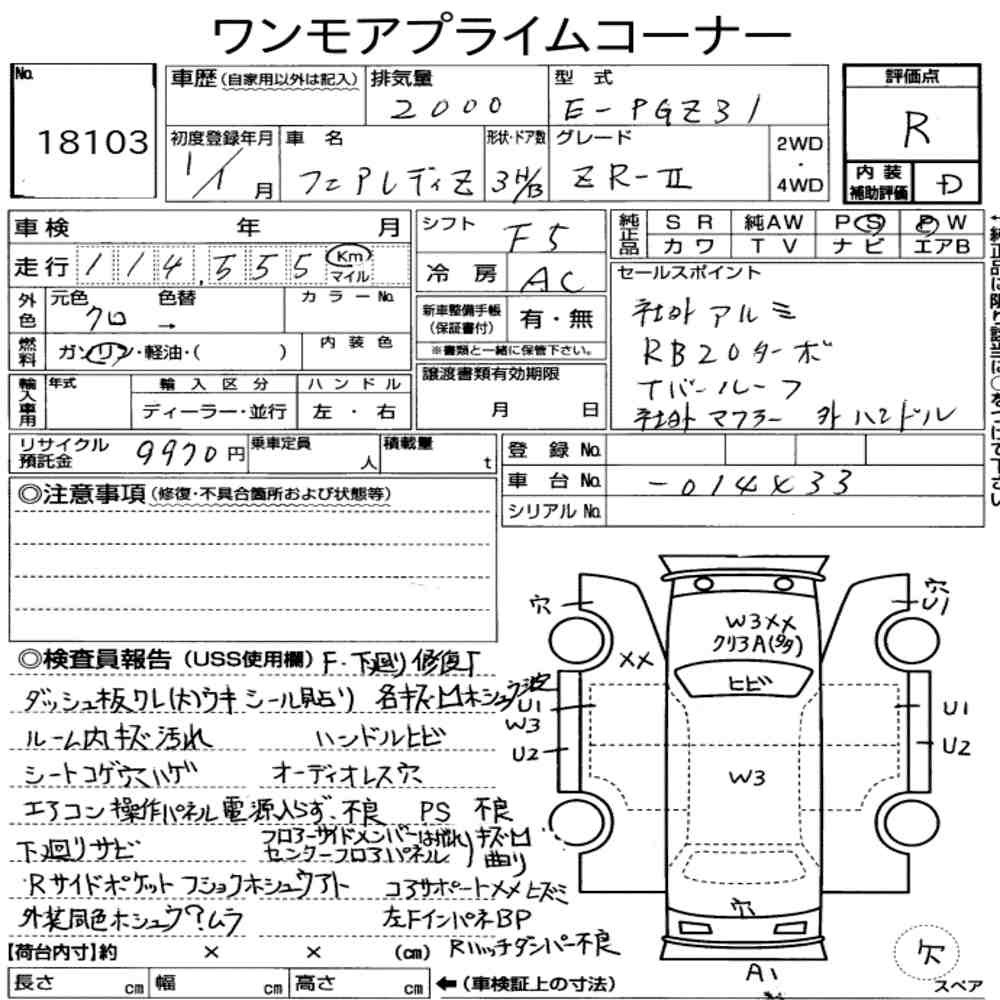 ワンモアプライムコーナー
No.
18103
車歴(自家用以外は記入)
排気量
2000
型式
E-PGZ31
評価点
R
初度登録年月
1/1月
車名
フェアレディZ
形状・ドア数
3H/B
グレード
ZR-II
2WD
・
4WD
内装
補助評価
D
車検 年 月
シフト
F5
純正品
SR 純AW PS PW
カワ TV ナビ エアB
走行 114,555 Km
マイル
冷房
AC
セールスポイント
社外アルミ
RB20ターボ
Tバールーフ
社外マフラー 外ハンドル
外色
元色 色替
クロ →
カラーNo.
新車整備手帳
(保証書付)
有・無
※書類と一緒に保管下さい。
燃料
ガソリン・軽油・( )
内装色
譲渡書類有効期限
月 日
輸入車用
年式
輸入区分
ディーラー・並行
ハンドル
左・右
リサイクル
預託金
9970円
乗車定員
人
積載量
t
登録No.
車台No.
-014X33
シリアルNo.
◎注意事項(修復・不具合箇所および状態等)
◎検査員報告(USS使用欄) F・下廻り修復「
ダッシュ板ワレ(大)ウキ シール貼り 各キズ凹ホシュウ波
ルーム内キズ汚れ ハンドルヒビ
シートコゲ穴ハゲ オーディオレス穴
エアコン操作パネル電源入らず.不良 PS 不良
下廻りサビ
フロアーサイドメンバーはがれ
センターフロアパネル
キズ凹
曲り
Rサイドポケットフショクホシュウアト コアサポートメメヒズミ
外装同色ホシュウ?ムラ 左FインパネBP
Rハッチダンパー不良
【荷台内寸】約 × × (cm)
長さ cm 幅 cm 高さ cm
←(車検証上の寸法)
穴
穴
U1
W3XX
クリアA(多々)
XX
ヒビ
U1
W3
U2
U1
U2
W3
穴
A1
欠
スペア